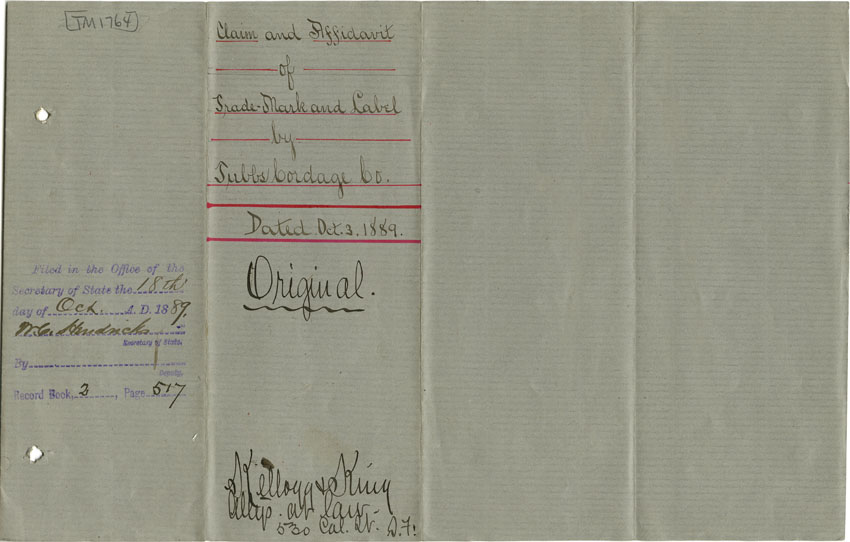 TM1764
Claim and Affidavit
of
Trade-Mark and Label
by
Tubbs Cordage Co.
Dated Oct. 3. 1889.
Original.
Kellogg & King
Attys. at Law
530 Cal. St. S.F.
Filed in the Office of the
Secretary of State the 18th
day of Oct. A. D. 1889.
W. C. Hendricks
Secretary of State.
By
Deputy.
Record Book, 2, Page 517